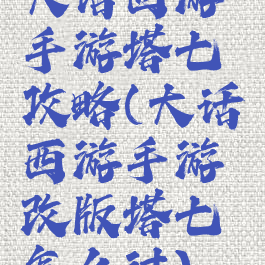 大话西游
手游塔七
攻略(大话
西游手游
改版塔七
怎么过)